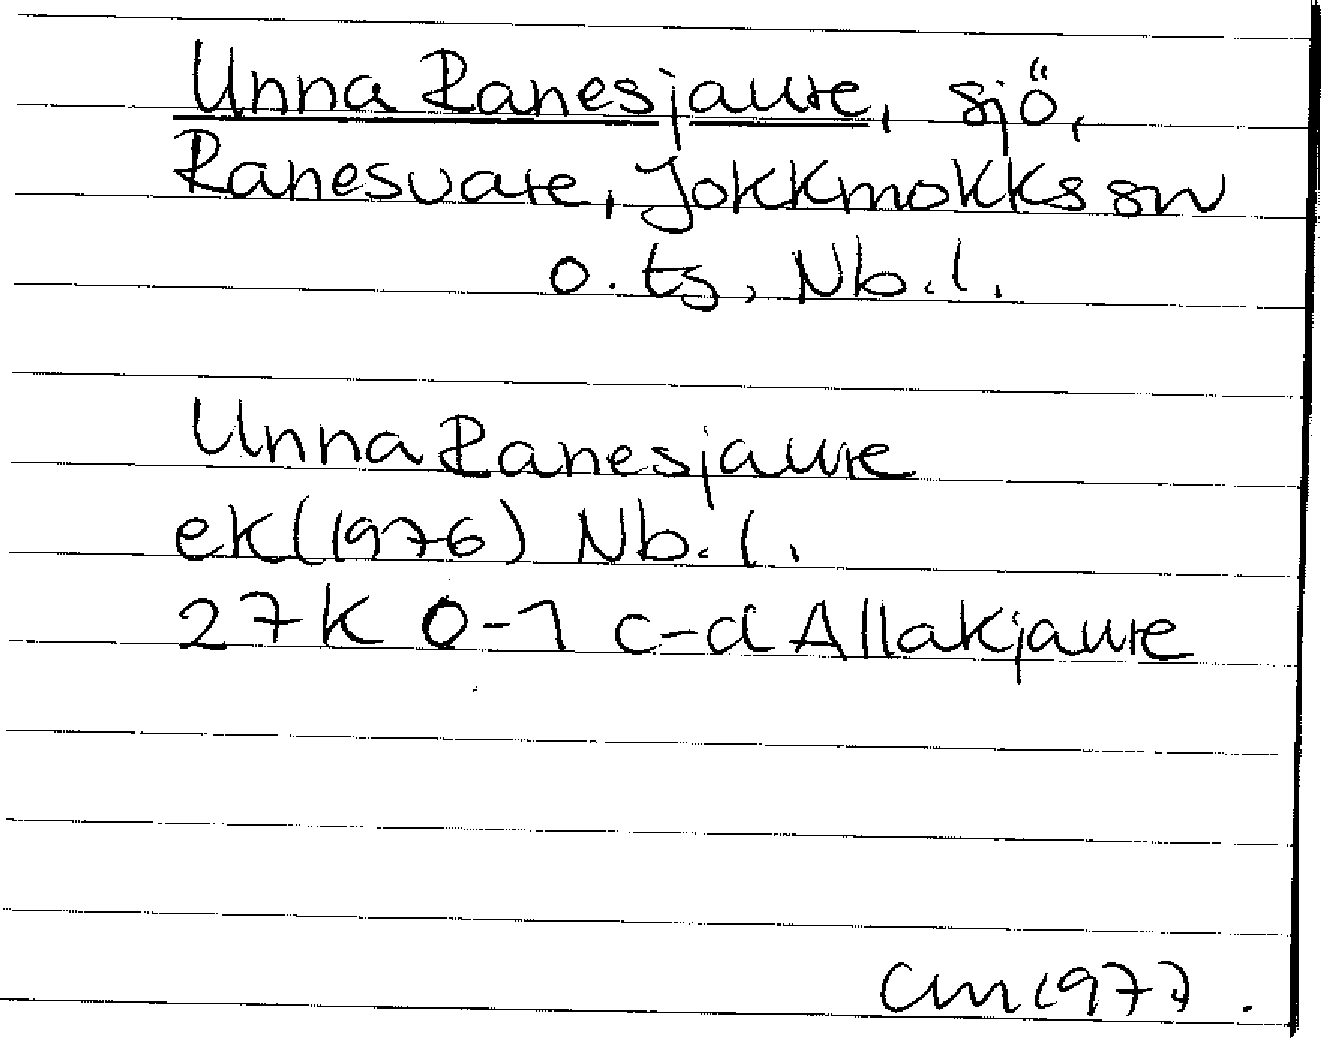 Unna Ranesjaure, sjö,
Ranesvare, Jokkmokks sn
o. ts, Nb.l.
Unna Ranesjaure
ek (1976) Nb.l.
27K 0-1 c-d Allakjaure
Cm 1977.